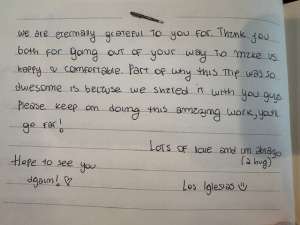 we are eternally grateful to you for. Thank you
both for going out of your way to make us
happy & comfortable. Part of why this trip was so
awesome is because we shared it with you guys
Please keep on doing this amazing work, you'll
go far!
Lots of love and un abrazo
(a hug)
Hope to see you
again! ♡
Los Iglesias ☺